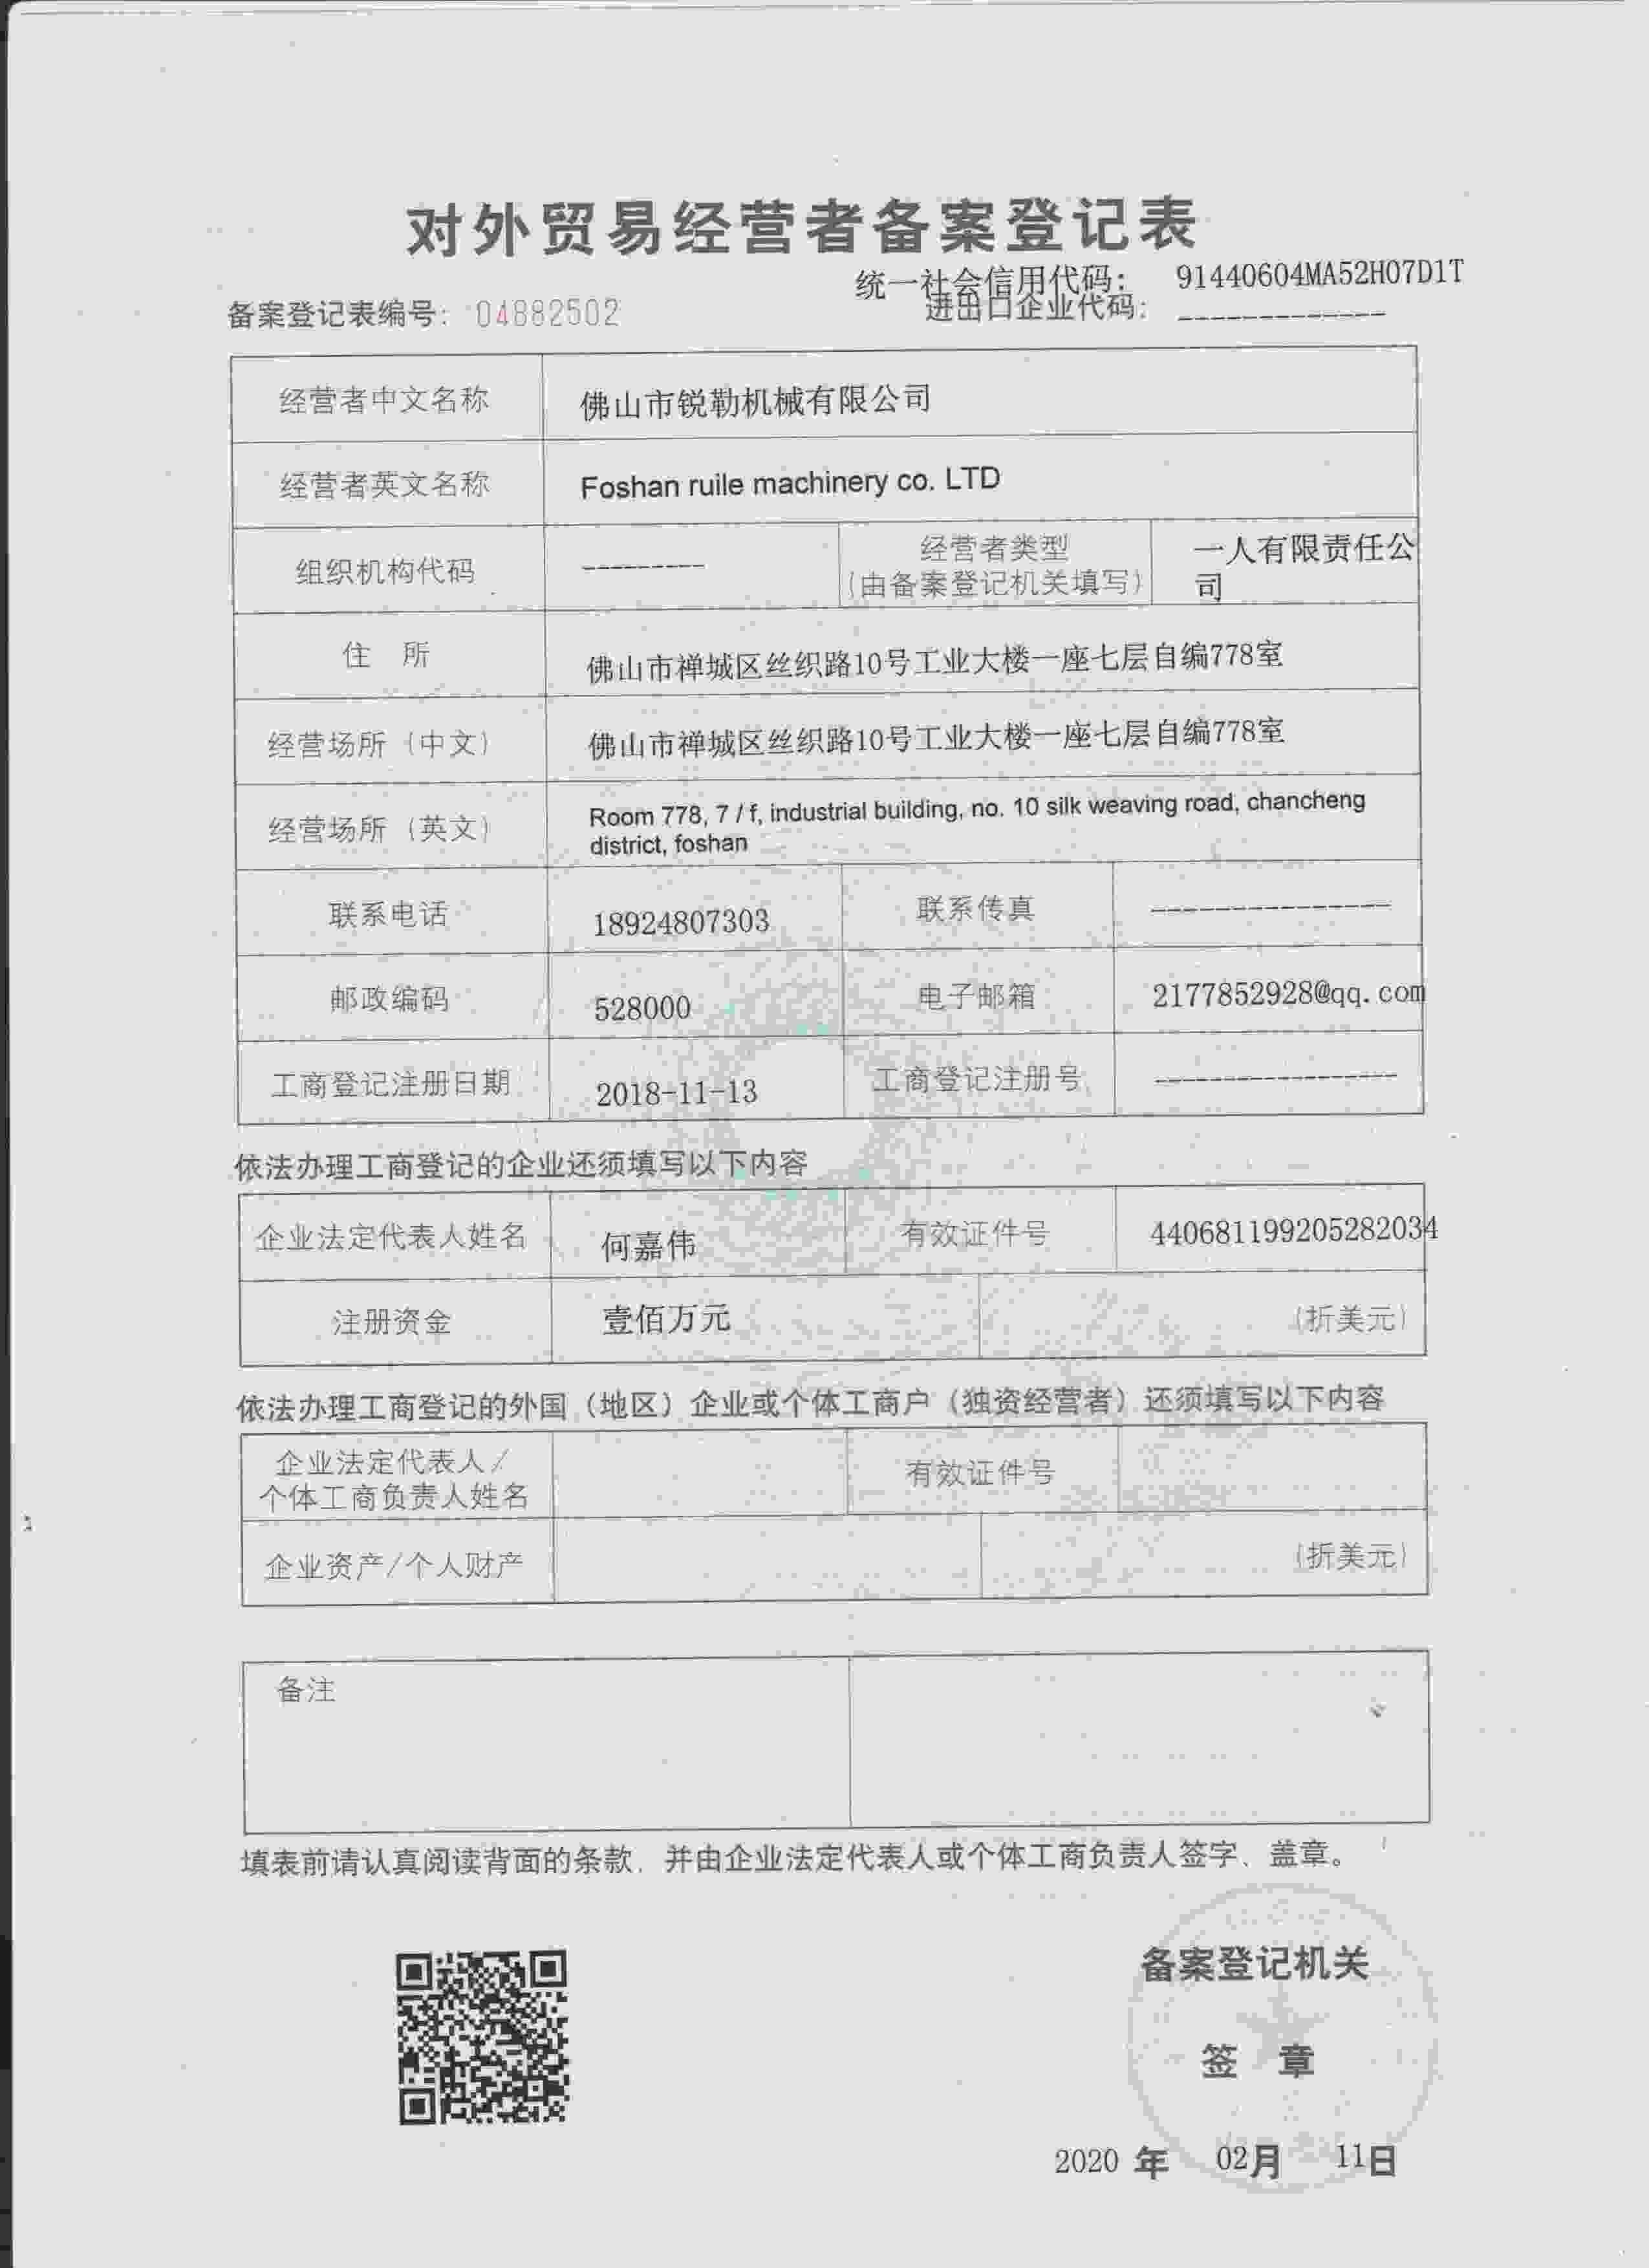 对外贸易经营者备案登记表
统一社会信用代码： 91440604MA52H07D1T
备案登记表编号： 04882502
进出口企业代码： -------------
经营者中文名称 佛山市锐勒机械有限公司
经营者英文名称 Foshan ruile machinery co. LTD
组织机构代码 --------- 经营者类型 一人有限责任公
(由备案登记机关填写) 司
住 所 佛山市禅城区丝织路10号工业大楼一座七层自编778室
经营场所（中文） 佛山市禅城区丝织路10号工业大楼一座七层自编778室
经营场所（英文） Room 778, 7 / f, industrial building, no. 10 silk weaving road, chancheng
district, foshan
联系电话 18924807303 联系传真 ----------------
邮政编码 528000 电子邮箱 2177852928@qq.com
工商登记注册日期 2018-11-13 工商登记注册号 ----------------
依法办理工商登记的企业还须填写以下内容
企业法定代表人姓名 何嘉伟 有效证件号 440681199205282034
注册资金 壹佰万元 (折美元)
依法办理工商登记的外国（地区）企业或个体工商户（独资经营者）还须填写以下内容
企业法定代表人/
个体工商负责人姓名 有效证件号
企业资产/个人财产 (折美元)
备注
填表前请认真阅读背面的条款，并由企业法定代表人或个体工商负责人签字、盖章。
备案登记机关
签 章
2020 年 02月 11日